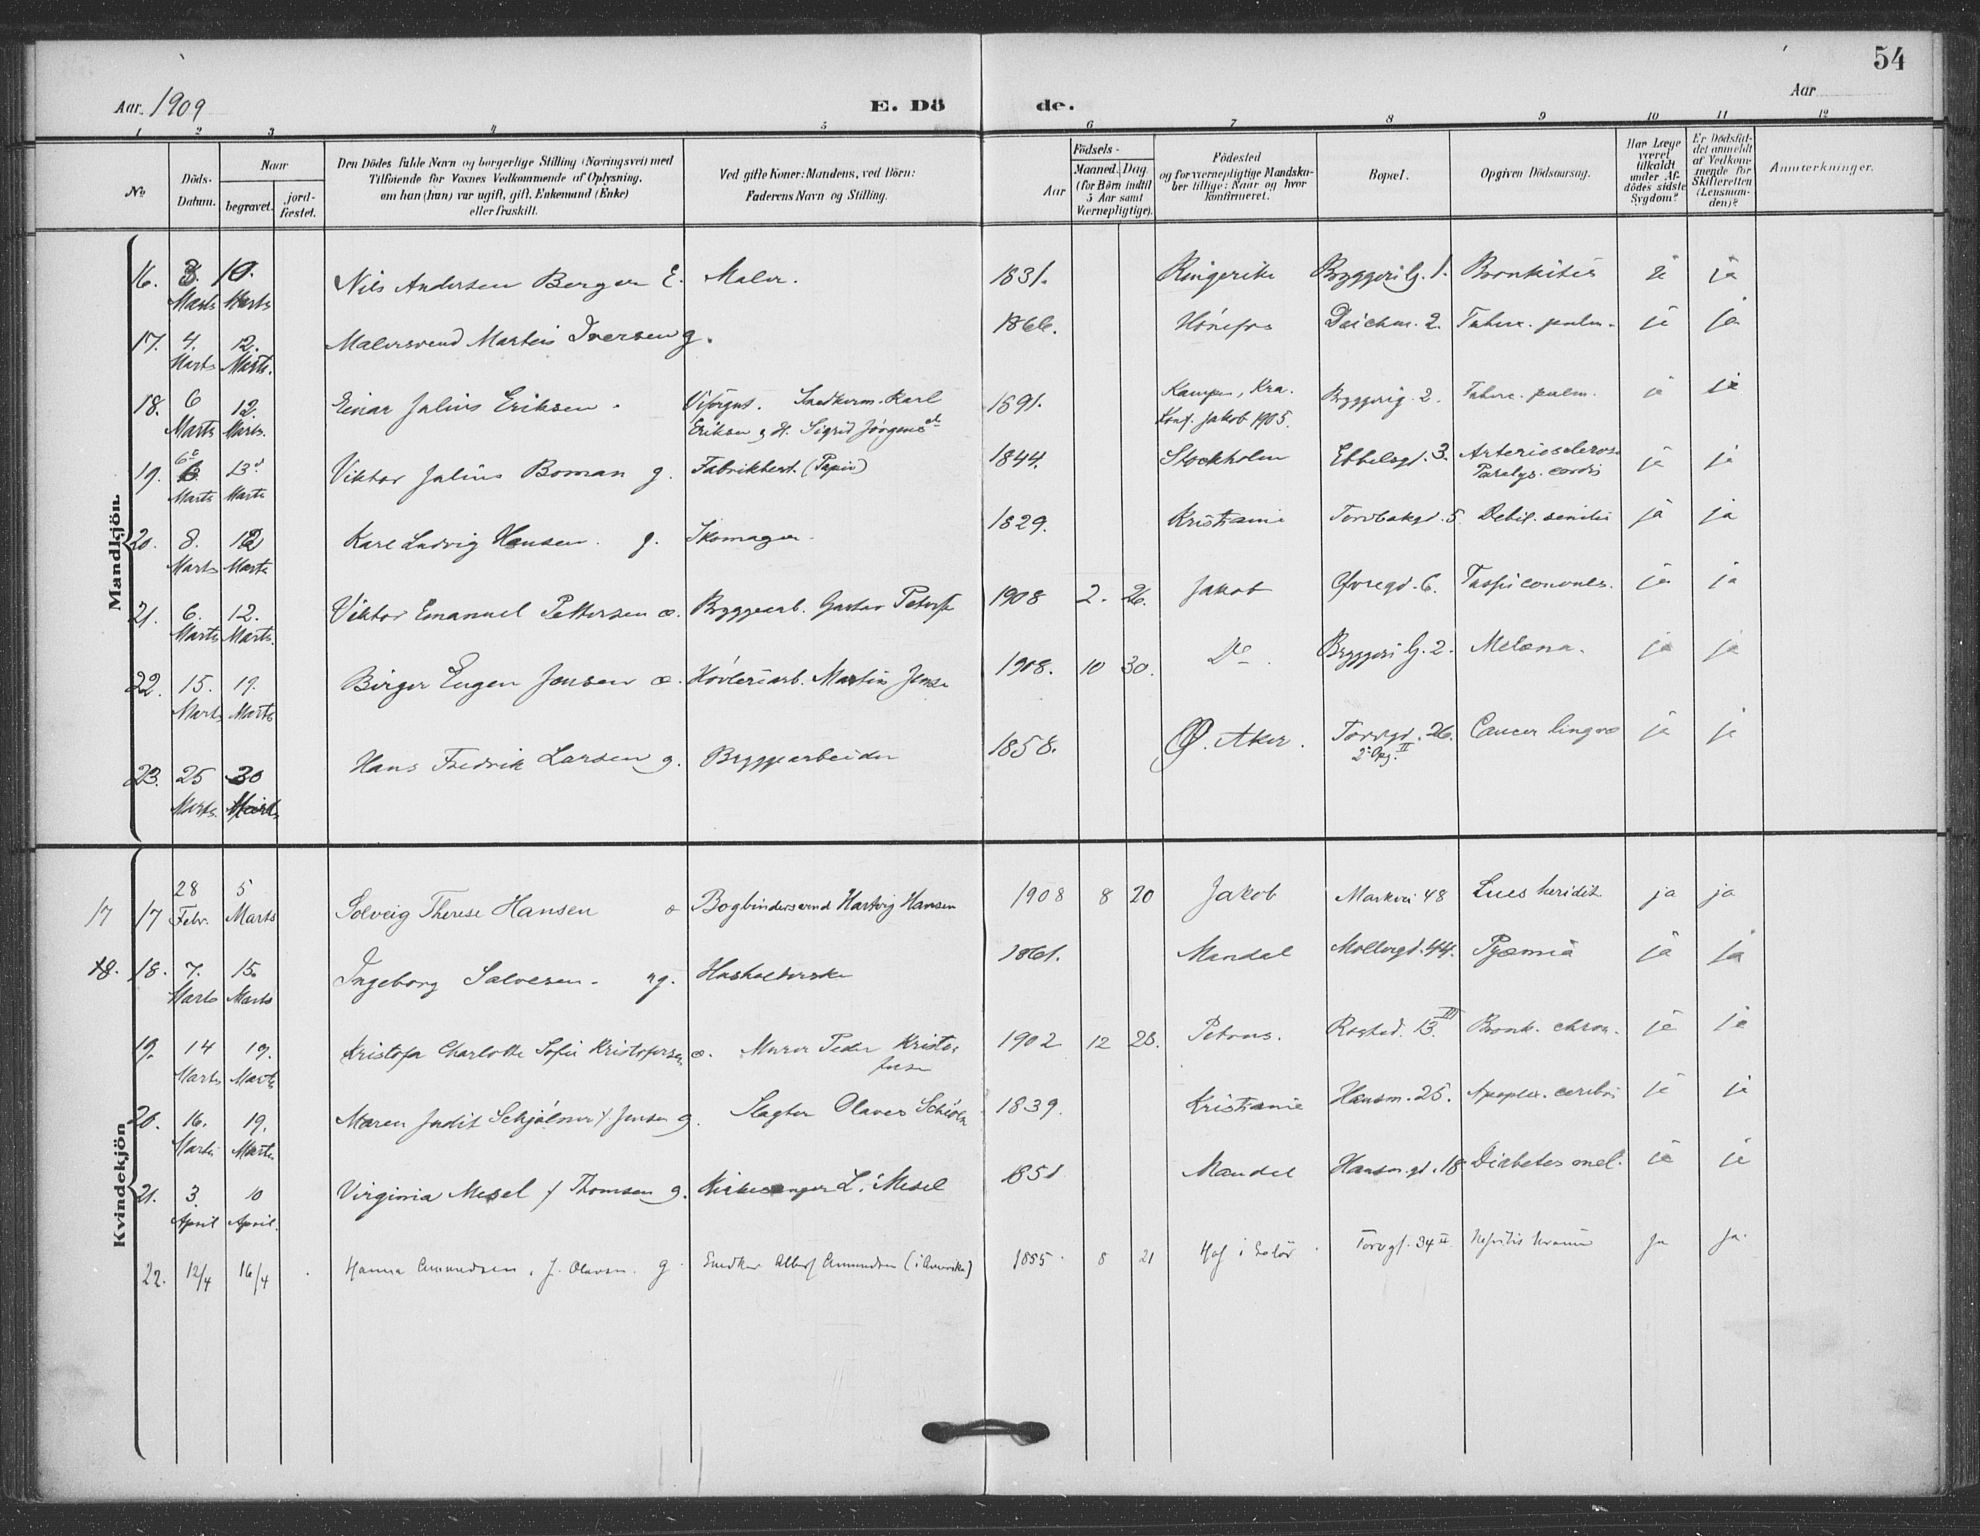 54
Aar. 1909 E. Dö de. Aar
1 2 3 4 5 6 7 8 9 10 11 12
No
Döds-Datum.
Naar
begravet.
jord-fæstet.
Den Dödes fulde Navn og borgerlige Stilling (Næringsvei) med
Tilföiende for Voxnes Vedkommende af Oplysning,
om han (hun) var ugift, gift, Enkemand (Enke)
eller fraskilt.
Ved gifte Koner: Mandens, ved Börn:
Faderens Navn og Stilling.
Födsels-
Aar
Maaned. Dag
(for Börn indtil
5 Aar samt
Værnepligtige).
Födested
og for værnepligtige Mandska-
ber tillige: Naar og hvor
konfirmeret.
Bopæl.
Opgiven Dödsaarsag.
Har Læge
været
tilkaldt
under Af-
dödes sidste
Sygdom?
Er Dödsfal-
det anmeldt
af Vedkom-
mende for
Skifteretten
(Lensman-
den)?
Anmærkninger.
Mandkjön
16. 3. Marts 10. Marts Nils Andersen Berger E. Maler. 1831. Ringerike Bryggeri G. 1. Bronkitis ja ja
17. 4. Marts 12. Marts. Malersvend Martin Iversen g. 1866. Hönefos Deichm. 2. Tuberc. pulm. ja ja
18. 6 Marts 12. Marts. Einar Julius Eriksen. Visergut. Snedkerm. Karl
Eriksen og H. Sigrid Jørgens 1891. Kampen, Kra.
Konf. Jakob 1905. Bryggerig. 2. Tuberc. pulm. ja ja
19. 6 Marts 13 Marts Viktor Julius Boman g. Fabrikbest. (Papir) 1844. Stockholm Ebbelsgt. 3. Arterioscleros.
Paralys. cordis ja ja
20. 8. Marts 12 Marts Karl Ludvig Hansen. g. Skomager. 1829. Kristiania Torvbakgd. 5 Debil. senilis ja ja
21. 6. Marts 12. Marts. Viktor Emanuel Pettersen æ. Bryggearb. Gustav Peters 1908 2. 26. Jakob Øvregd. 6. ja ja
22. 15. Marts 19. Marts Birger Eugen Jensen æ. Høvleriarb. Martin Jens 1908. 10 30. Do Bryggeri G. 2. Melæna. ja ja
23. 25 Marts. 30 Marts Hans Fredrik Larsen g. Bryggearbeider 1858. Ø. Aker. Torvgd. 26.
2 Opg. II Cancer lingvæ ja ja
Kvindekjön
17 17 28 Febr. 5 Marts Solveig Therese Hansen æ Bogbindersvend Hartvig Hansen 1908 8 20 Jakob Markvei 48 Lues heridit ja ja
18. 18. 7. Marts 15. Marts Ingeborg Salvesen. ug. Husholderske 1861. Mandal Møllergd. 44. Pyæmia ja ja
19. 14 Marts 19. Marts Kristofa Charlotte Sofie Kristofersen æ. Murer Peder Kristo-
fersen 1902 12 28. Petrus. Rosted. 13. III Bronk. chron. ja ja
20. 16. Marts 19. Marts Maren Judit f. Jensen g. Slagter Olaves 1839. Kristiania Hausm. 25. Apoplex. cerebri ja ja
21. 3. April 10 April. Virginia Mesel f Thomsen g. Kirkesanger L. Mesel 1851 Mandal Hausm. gd. 18 Diabetes mel. ja ja
22. 12/4 16/4 Hanna Amundsen, f. Olavsen. g. Snedker Albert Amundsen (i Amerika) 1855. 8 21 Hof i Solør. Torvgt. 34 II Nefritis kronic ja ja.